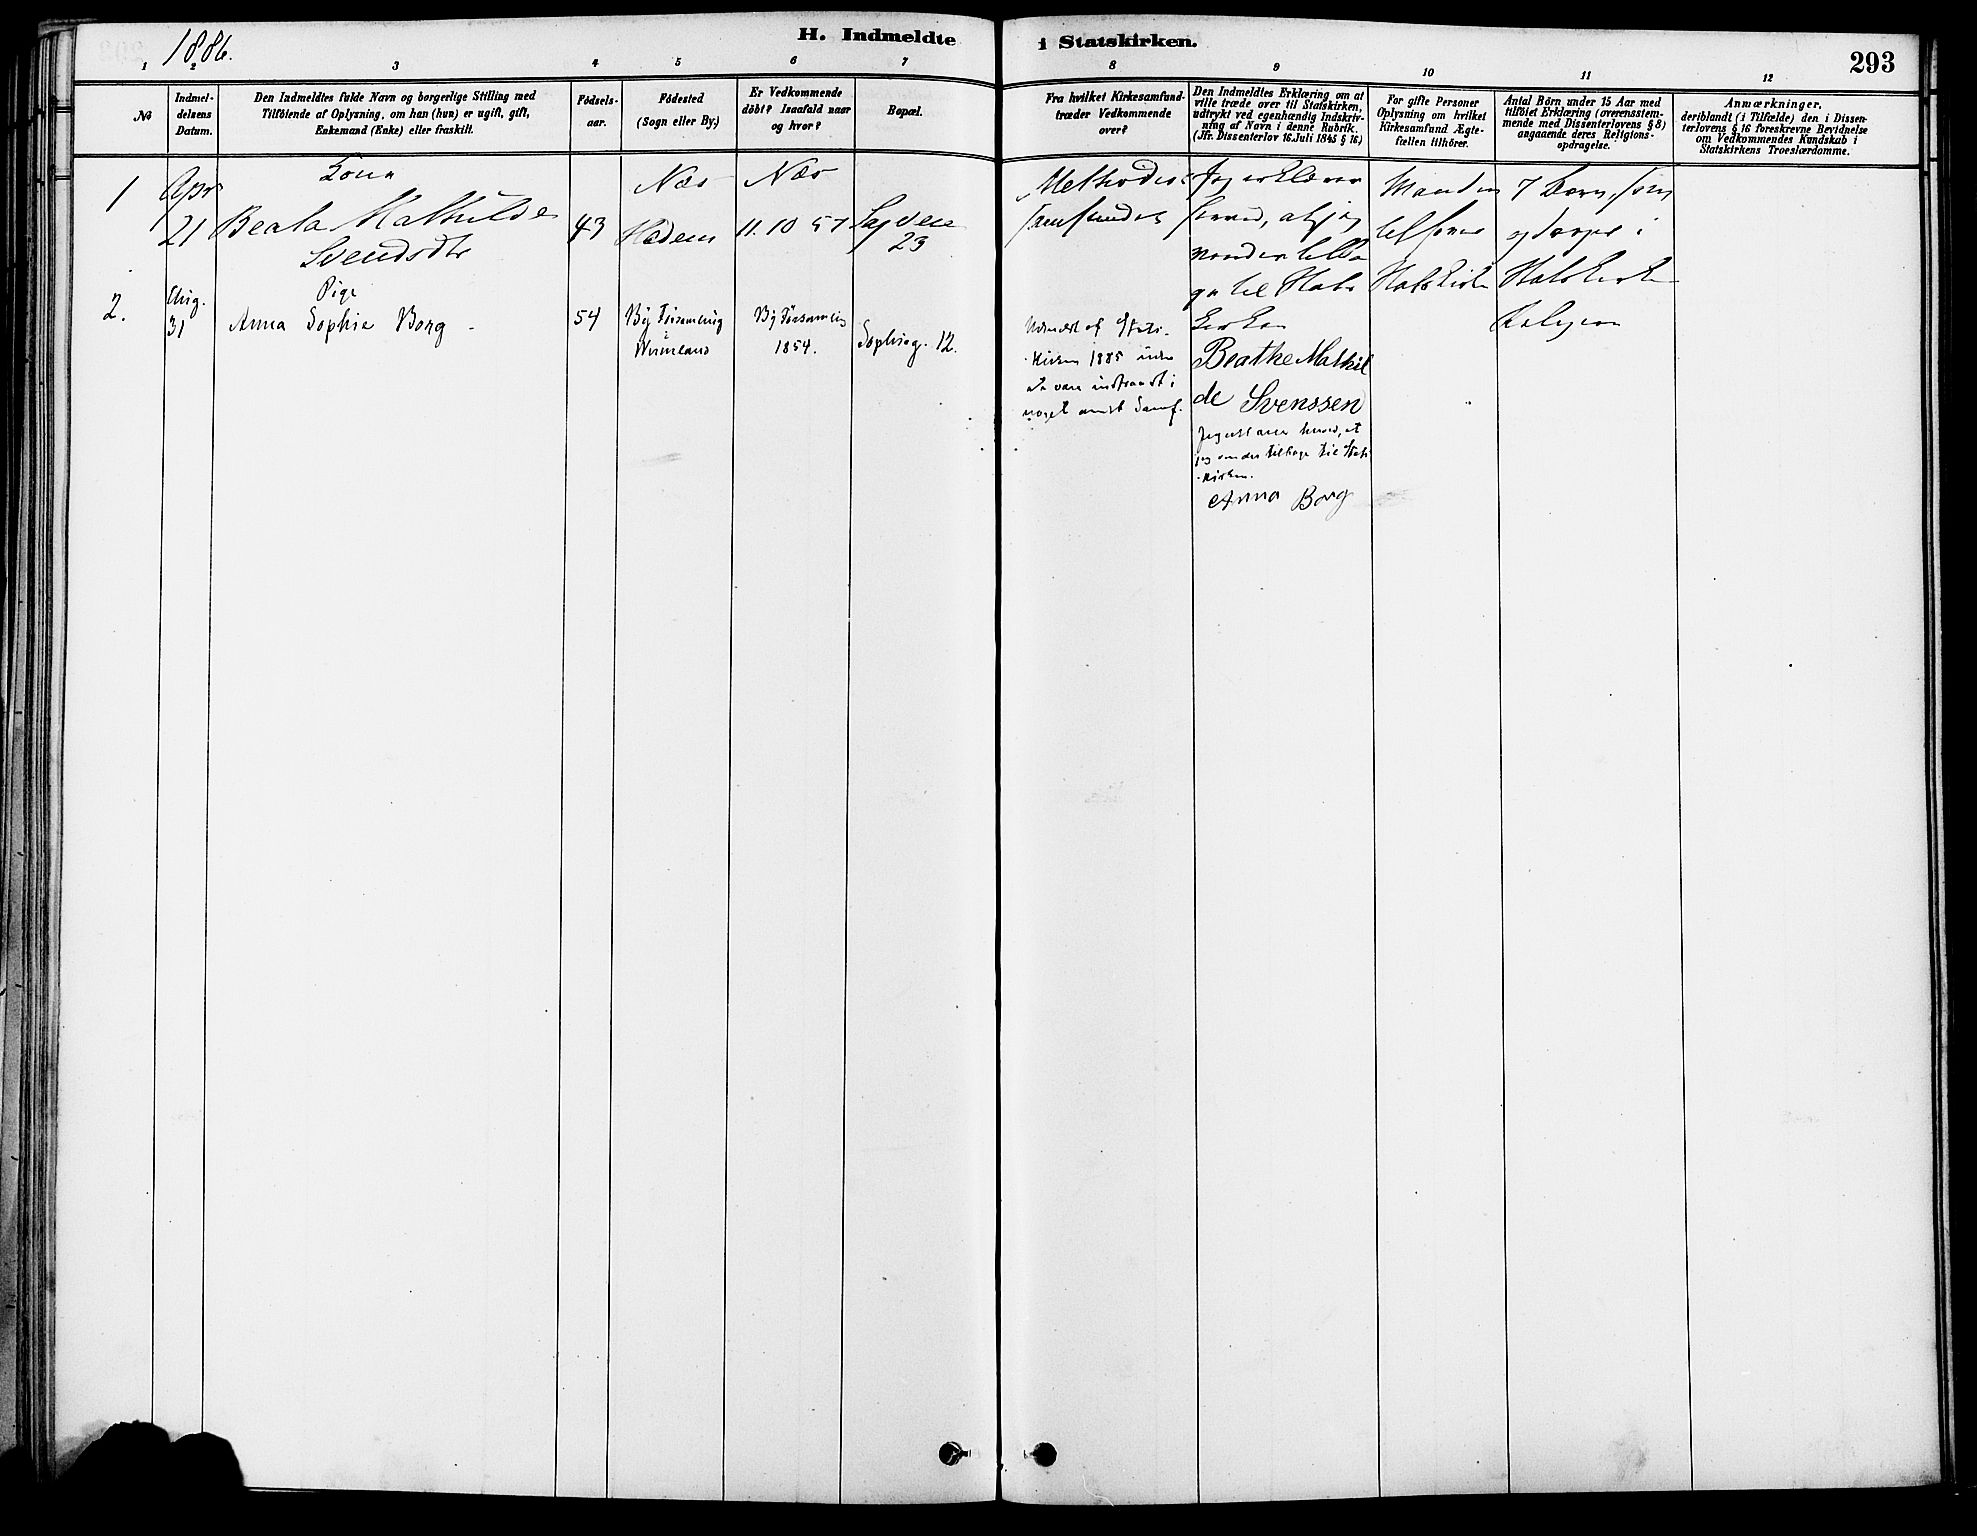 1886.
H. Indmeldte i Statskirken.
293
1 2 3 4 5 6 7 8 9 10 11 12
No
Indmel-
delsens
Datum.
Den Indmeldtes fulde Navn og borgerlige Stilling med
Tilföiende af Oplysning, om han (hun) er ugift, gift,
Enkemand (Enke) eller fraskilt.
Födsels-
aar.
Födested
(Sogn eller By.)
Er Vedkommende
döbt? Isaafald naar
og hvor?
Bopæl.
Fra hvilket Kirkesamfund
træder Vedkommende
over?
Den Indmeldtes Erklæring om at
ville træde over til Statskirken,
udtrykt ved egenhændig Indskriv-
ning af Navn i denne Rubrik.
(Jfr. Dissenterlov 16. Juli 1845 § 16)
For gifte Personer
Oplysning om hvilket
Kirkesamfund Ægte-
fællen tilhörer.
Antal Börn under 15 Aar med
tilföiet Erklæring (overensstem-
mende med Dissenterlovens § 8)
angaaende deres Religions-
opdragelse.
Anmærkninger,
deriblandt (i Tilfælde) den i Dissen-
terlovens § 16 foreskrevne Bevidnelse
om Vedkommendes Kundskab i
Statskirkens Troeslærdomme.
1
Apr
21
Kona
Beata Mathilde
Svendsdtr
43
Næs
Hedem
Næs
11. 10 57
Sagvein
23
Methodist
samfundet
Jeg erklærer
herved, at jeg
vender tilba
ge til Stats
kirken
Beathe Mathil
de Svenssen
Manden
tilhører
Statskirken
7 Børn, som
opdrages i
Statskirkens
Religion
2.
Aug.
31
Pige
Anna Sophie Borg
54
By Församling
Wermland
By Församling
1854.
Sophieg. 12.
Udmeldt af Stats-
kirken 1885 uden
at være indtraadt i
noget andet Samf.
Jeg erklærer herved, at
jeg vender tilbage til Stats
kirken.
Anna Borg